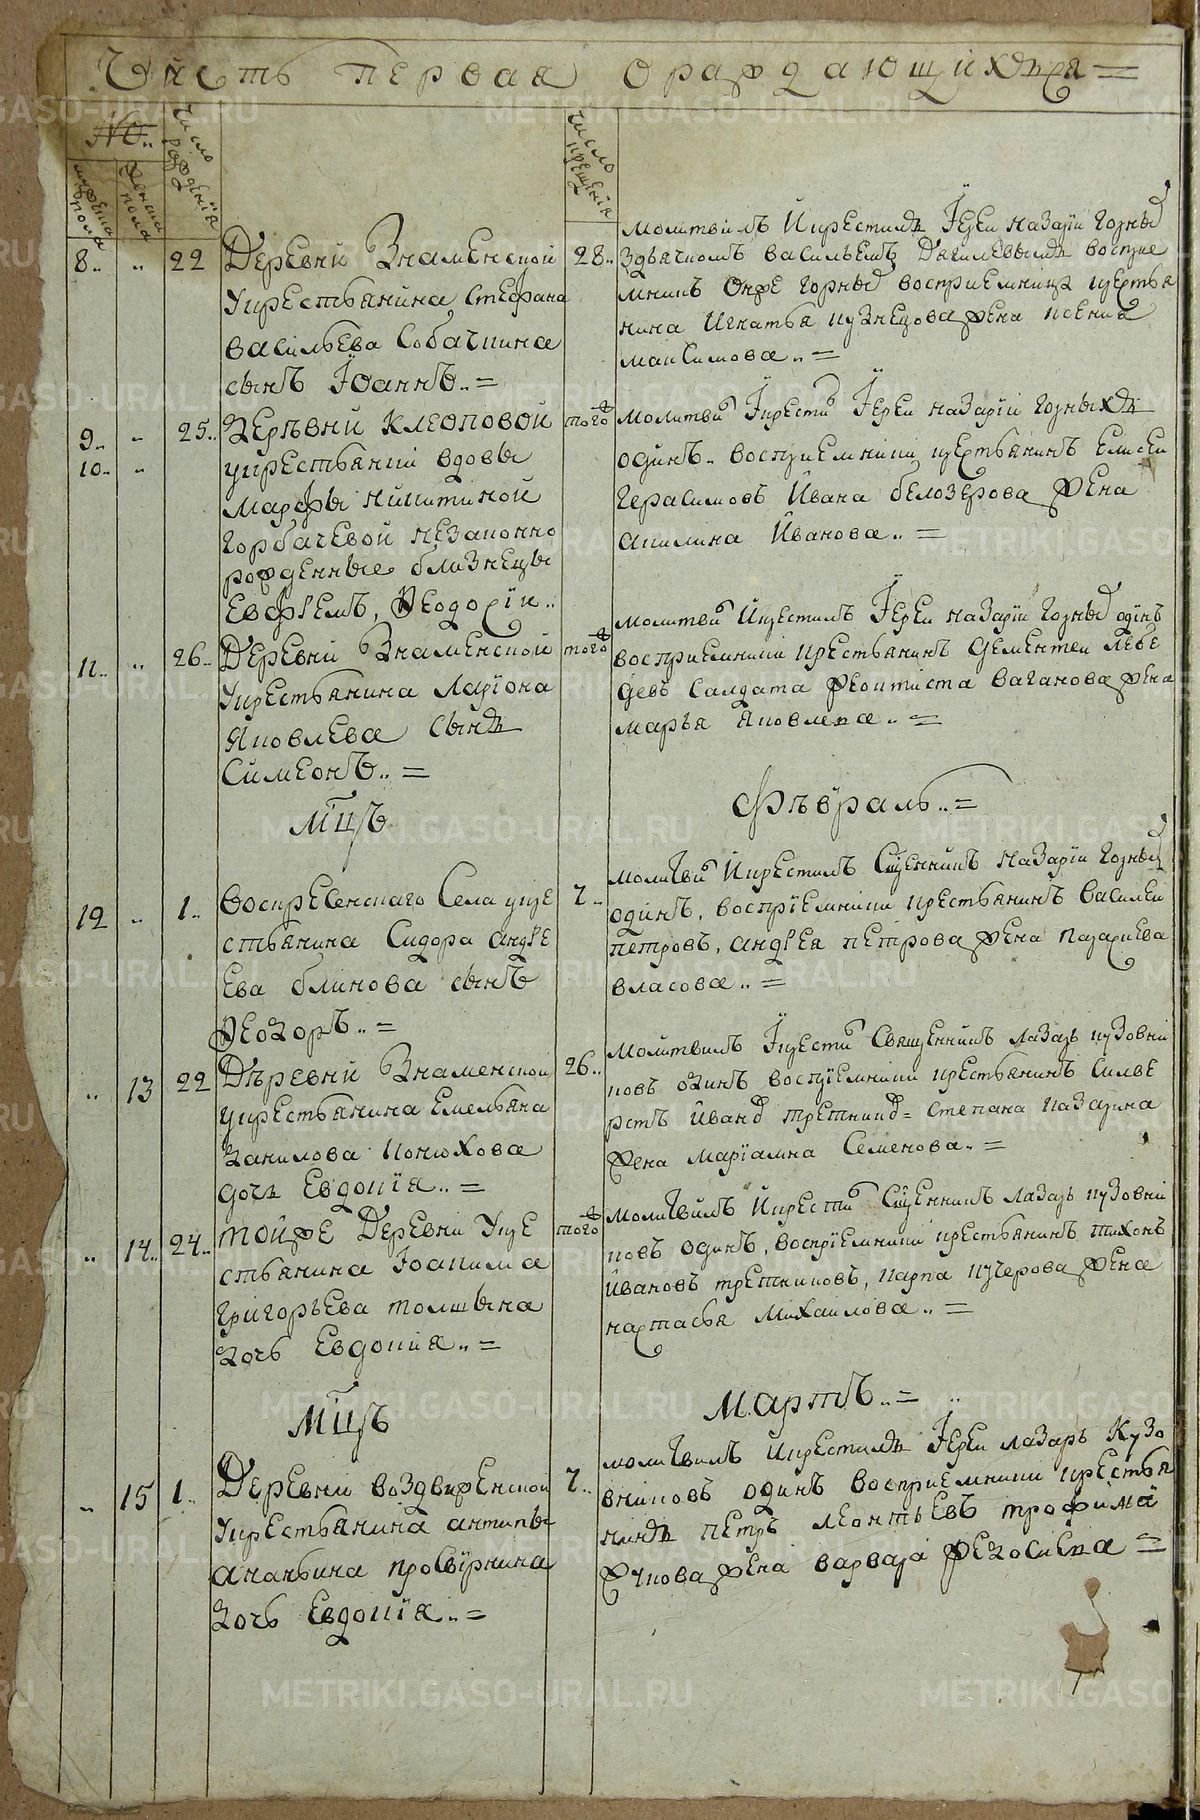 Часть первая ораждающихъся
№..
мужеска пола
женска пола
число рожденїя
число крещенїя
8.. „ 22
Деревни Знаменской
укрестьянина стефана
васильева Собачкина
сынъ Iоаннъ..=
28..
молитвилъ Икрестилъ Iерей назарїи Горныхъ
здьячкомъ васильемъ
мникъ Онже горныхъ восприемница крестья
нина Игнатья кузнецова жена ксения
максимова..=
9.. „ 25..
10.. „
Деревни клеоповой
укрестьянки вдовы
Марфы никитиной
горбачевой незаконно
рожденные близнецы
Евфїемъ, Феодосїи..
того
молитви Iкрести Iерей назарїи Горныхъ
одинъ.. восприемники крестьянинъ елисеи
Герасимовъ Ивана белозерова жена
акилина Иванова..=
11.. „ 26..
Деревни Знаменской
укрестьянина Ларїона
Яковлева сынъ
Симеонъ..=
того
молитви Икрестилъ Iерей назарїи Горныхъ одинъ
восприемники крестьянинъ дементеи лебе
девъ салдата феоктиста ваганова жена
марья яковлева..=
мцъ Февраль..=
12 „ 1..
воскресенскаго Села укре
стьянина Сидора андре
ева блинова сынъ
Феодоръ..=
7..
молитви Икрестилъ Сщенникъ назарїи Горных
одинъ, восприемники крестьянинъ василеи
петровъ, андрея петрова жена
власова..=
„ 13 22
Деревни Знаменской
укрестьянина емельяна
данилова конюхова
дочь Евдокїя..=
26..
молитвилъ Iкрести Священникъ лазарь кузовни
ковъ одинъ восприемники крестьянинъ силве
рстъ Иванъ третников= степана назарина
жена марїамна Семенова..=
„ 14.. 24..
тойже Деревни укре
стьянина Iоакима
григорьева толшына
дочь Евдокия..=
того
молитвилъ Икрести Сщенникъ лазарь кузовни
ковъ одинъ, восприемники крестьянинъ тихонъ
Ивановъ третниковъ, карпа кучерова жена
настасья михаилова..=
мцъ Мартъ..=
„ 15 1..
Деревни воздвиженской
укрестьянина антипы
ананьина просвирнина
дочь Евдокїя..=
7..
молитвилъ Икрестилъ Iерей лазарь Кузо
вниковъ одинъ восприемники крестья
нинъ петръ леонтьевъ трофима
жена варвара федосиева=